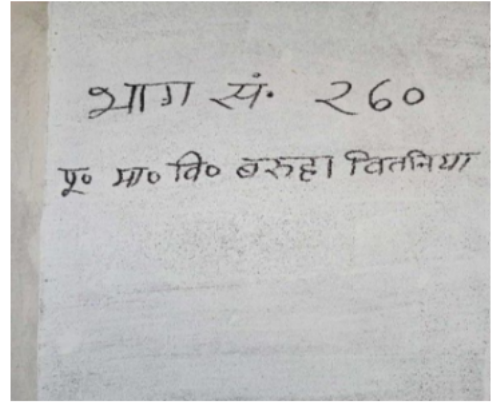 भाग सं. २६०
पू० मा० वि० बरुहा चितनिया